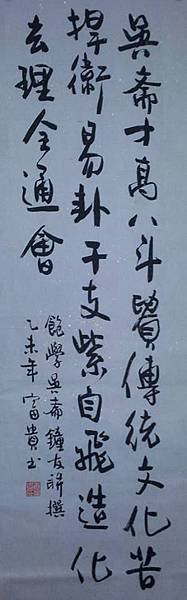 吳齋才高八斗貫傳統文化苦
捍衛易卦干支紫白飛造化
玄理全通會
飽學吳齋鐘友𧩙撰
乙未年 富貴書